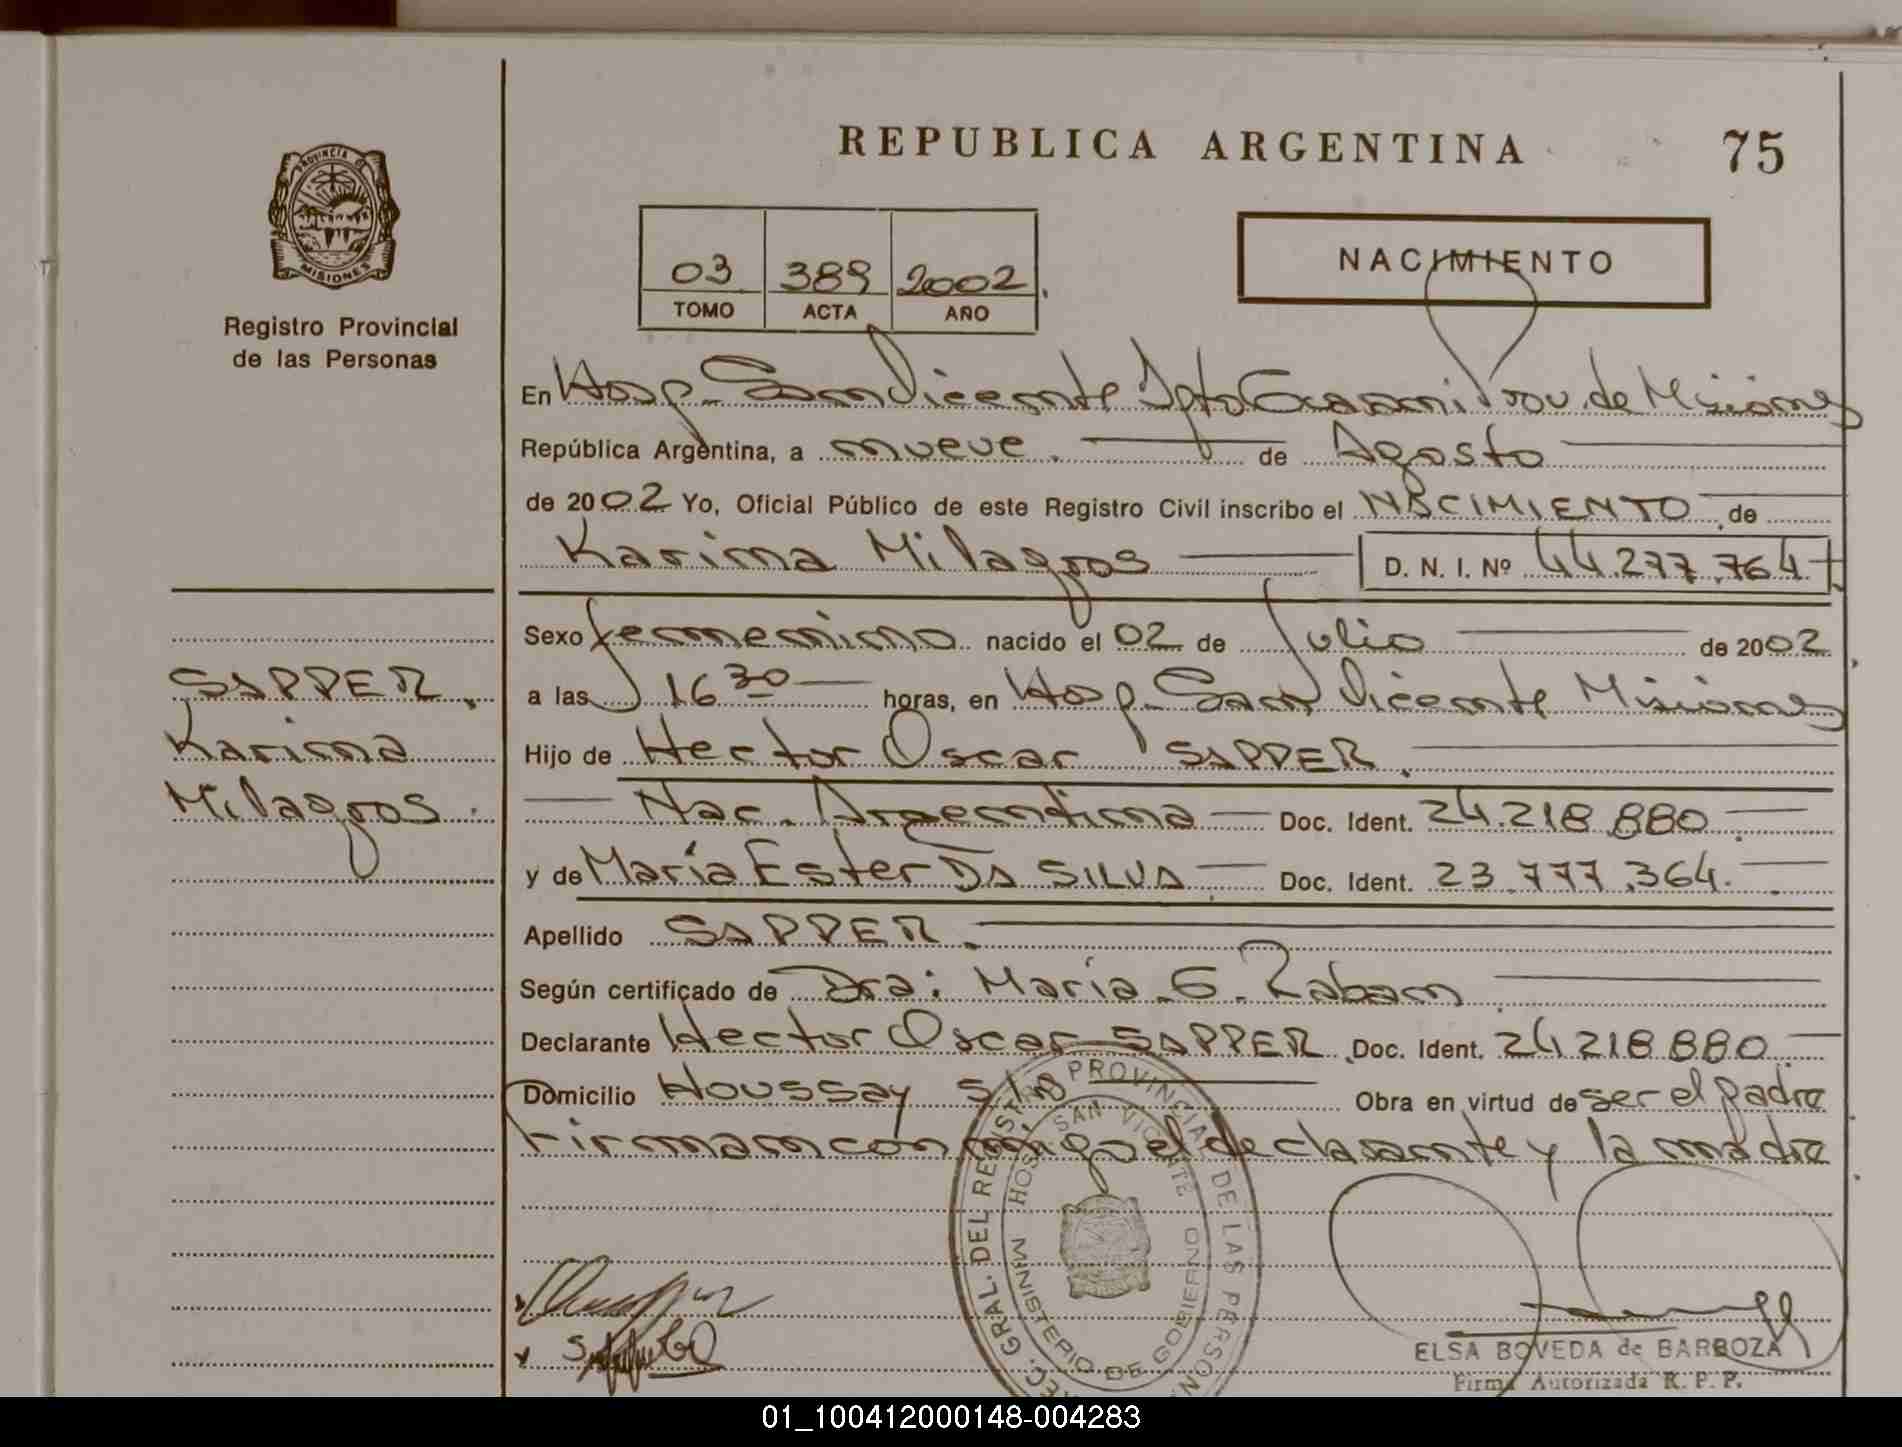 REPUBLICA ARGENTINA 75
PROVINCIA DE
MISIONES
Registro Provincial
de las Personas
03 389 2002
TOMO ACTA AÑO
NACIMIENTO
En Hosp. San Vicente Dpto Guaraní Prov. de Misiones
República Argentina, a nueve de Agosto
de 2002 Yo, Oficial Público de este Registro Civil inscribo el NACIMIENTO de
Karina Milagros D. N. I. Nº 44.277.764
Sexo femenino nacido el 02 de Julio de 2002
a las 16 30 horas, en Hosp. San Vicente Misiones
Hijo de Hector Oscar SAPPER.
Nac. Argentina Doc. Ident. 24.218.880
y de María Ester DA SILVA Doc. Ident. 23.777.364.
Apellido SAPPER.
Según certificado de Dra: María G. Raban
Declarante Hector Oscar SAPPER Doc. Ident. 24218880
Domicilio Houssay s/nº Obra en virtud de ser el padre
Firman conmigo el declarante y la madre
SAPPER.
Karina
Milagros.
REC. GRAL. DEL REGISTRO PROVINCIAL DE LAS PERSON
HOSP. SAN VICENTE
MINISTERIO DE GOBIERNO
ELSA BOVEDA de BARBOZA
Firma Autorizada R. P. P.
01_100412000148-004283